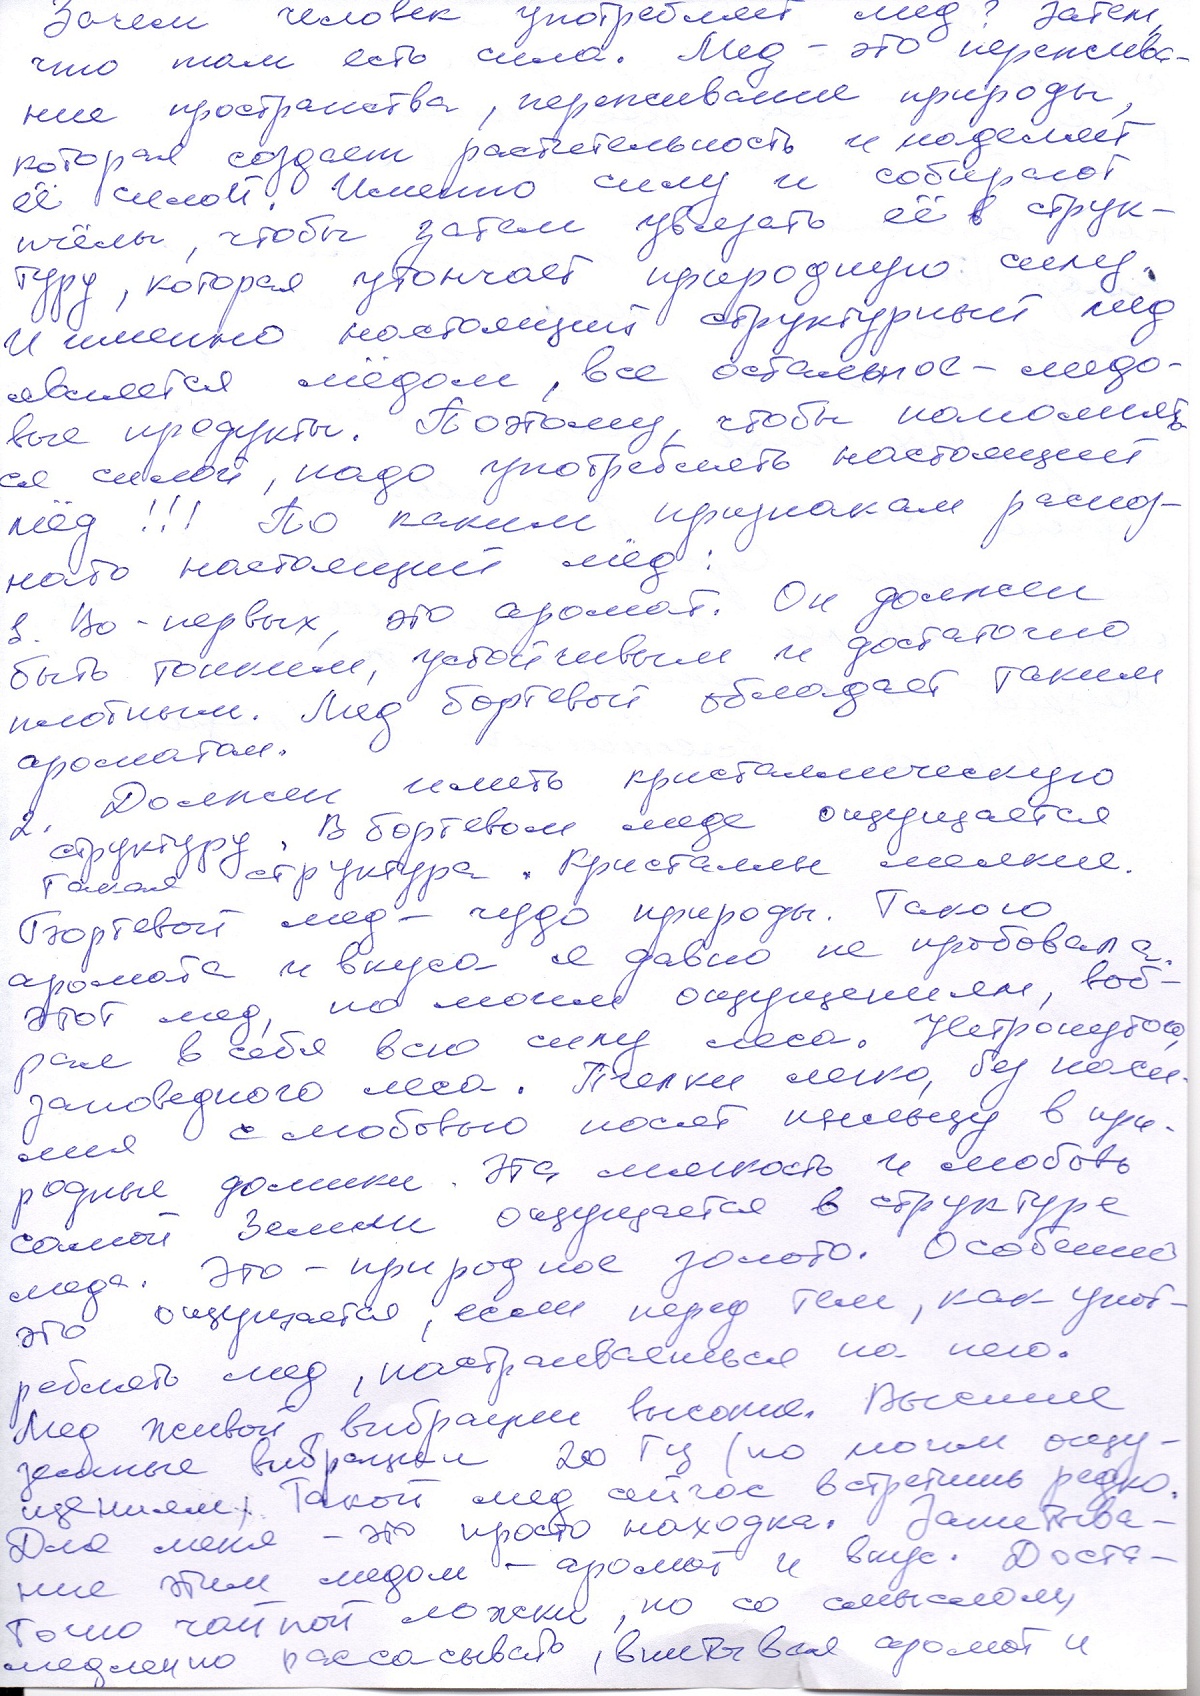 Зачем человек употребляет мед? Затем,
что там есть сила. Мед – это пережива-
ние пространства, переживание природы,
которая создает растительность и наделяет
её силой. Именно силу и собирают
пчёлы, чтобы затем увязать её в струк-
туру, которая утончает природную силу.
И именно настоящий структурный мед
является мёдом, все остальное – медо-
вые продукты. Поэтому, чтобы наполнять
ся силой, надо употреблять настоящий
мёд !!! По каким признакам распоз-
нать настоящий мёд:
1. Во-первых, это аромат. Он должен
быть тонким, устойчивым и достаточно
плотным. Мед бортевой обладает таким
ароматом.
2. Должен иметь кристаллическую
структуру. В бортевом меде ощущается
такая структура. Кристаллы мелкие.
Бортевой мед – чудо природы. Такого
аромата и вкуса я давно не пробовала.
Этот мед, по моим ощущениям, воб-
рал в себя всю силу леса. Нетронутого,
заповедного леса. Пчелки легко, без наси-
лия с любовью носят пыльцу в при-
родные домики. Эта мягкость и любовь
самой Земли ощущается в структуре
меда. Это – природное золото. Особенно
это ощущается, если перед тем, как упот-
реблять мед, настраиваешься на него.
Мед живой, вибрации высокие. Высшие
земные вибрации 20 Гц (по моим ощу-
щениям). Такой мед сейчас встретишь редко.
Для меня – это просто находка. Запитыва-
ние этим медом – аромат и вкус. Доста-
точно чайной ложки, но со смыслом,
медленно рассасывать, впитывая аромат и